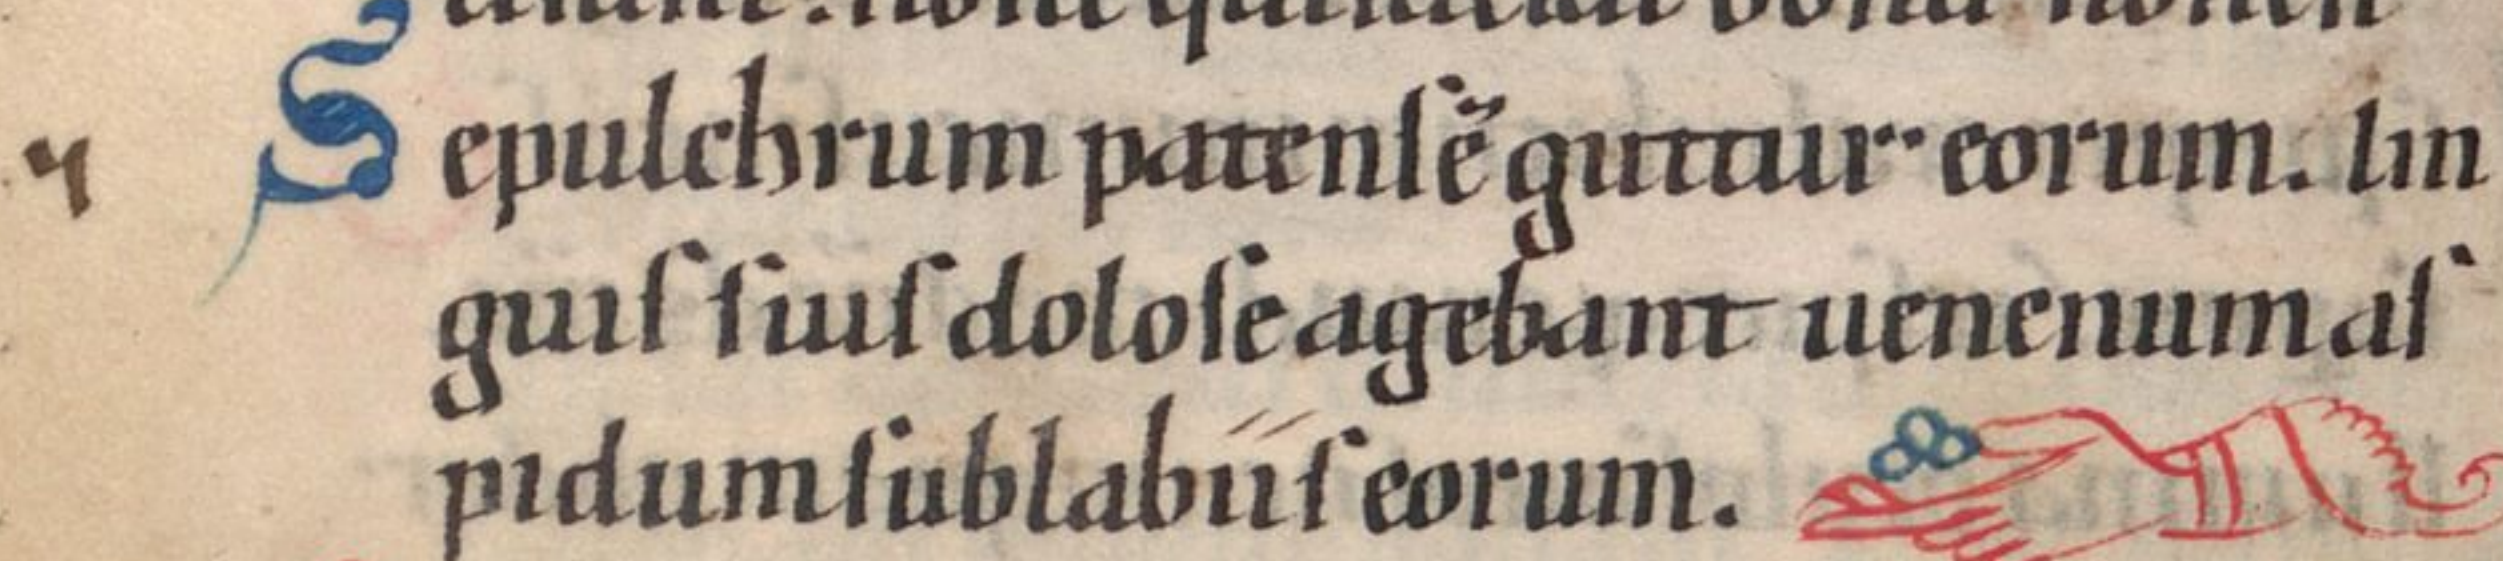 Sepulchrum patens ē guttur eorum. lin
guis suis dolose agebant uenenum as
pidum sub labiis eorum.